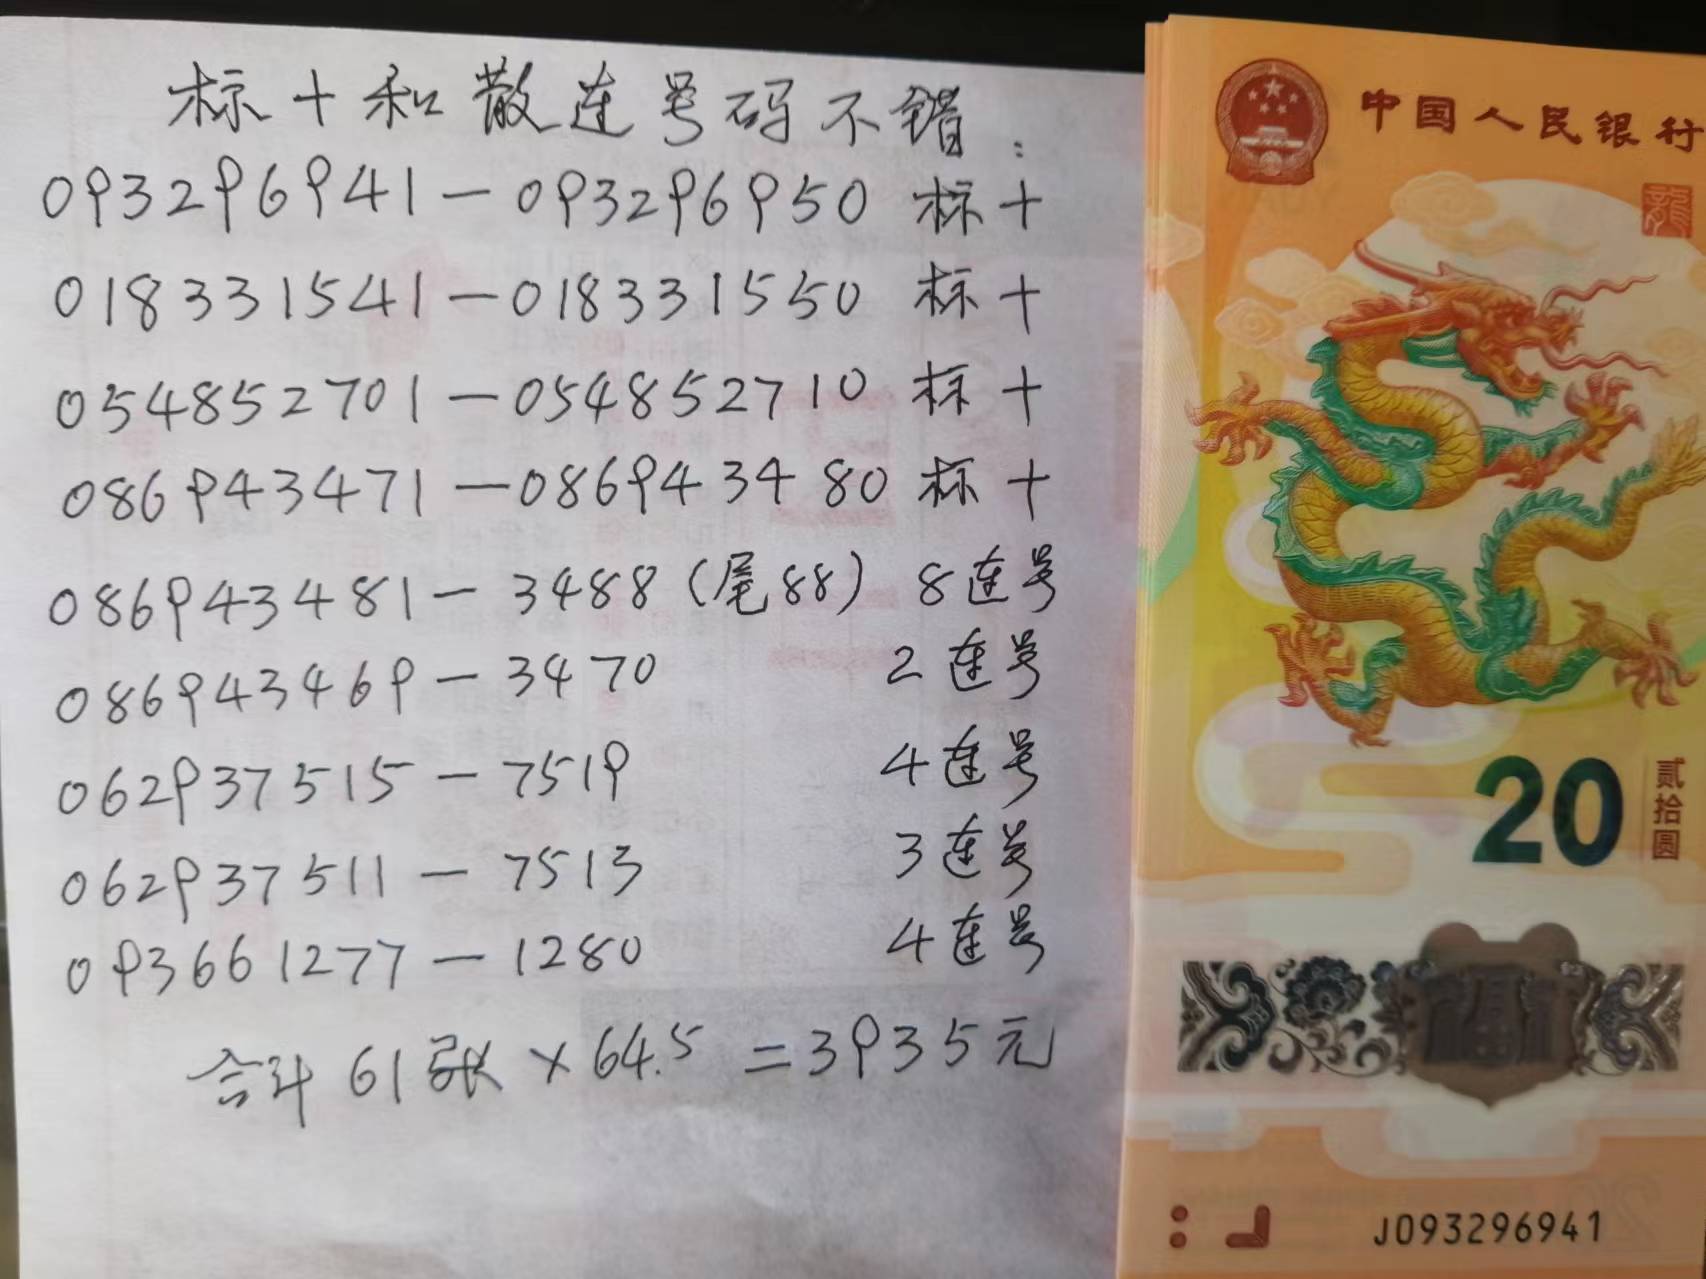 标十和散连号码不错:
093296941—093296950 标十
018331541—018331550 标十
054852701—054852710 标十
086943471—086943480 标十
086943481—3488(尾88) 8连号
086943469—3470 2连号
062937515—7519 4连号
062937511—7513 3连号
093661277—1280 4连号
合计61张×64.5=3935元
中国人民银行
龍
20
贰拾圆
J093296941